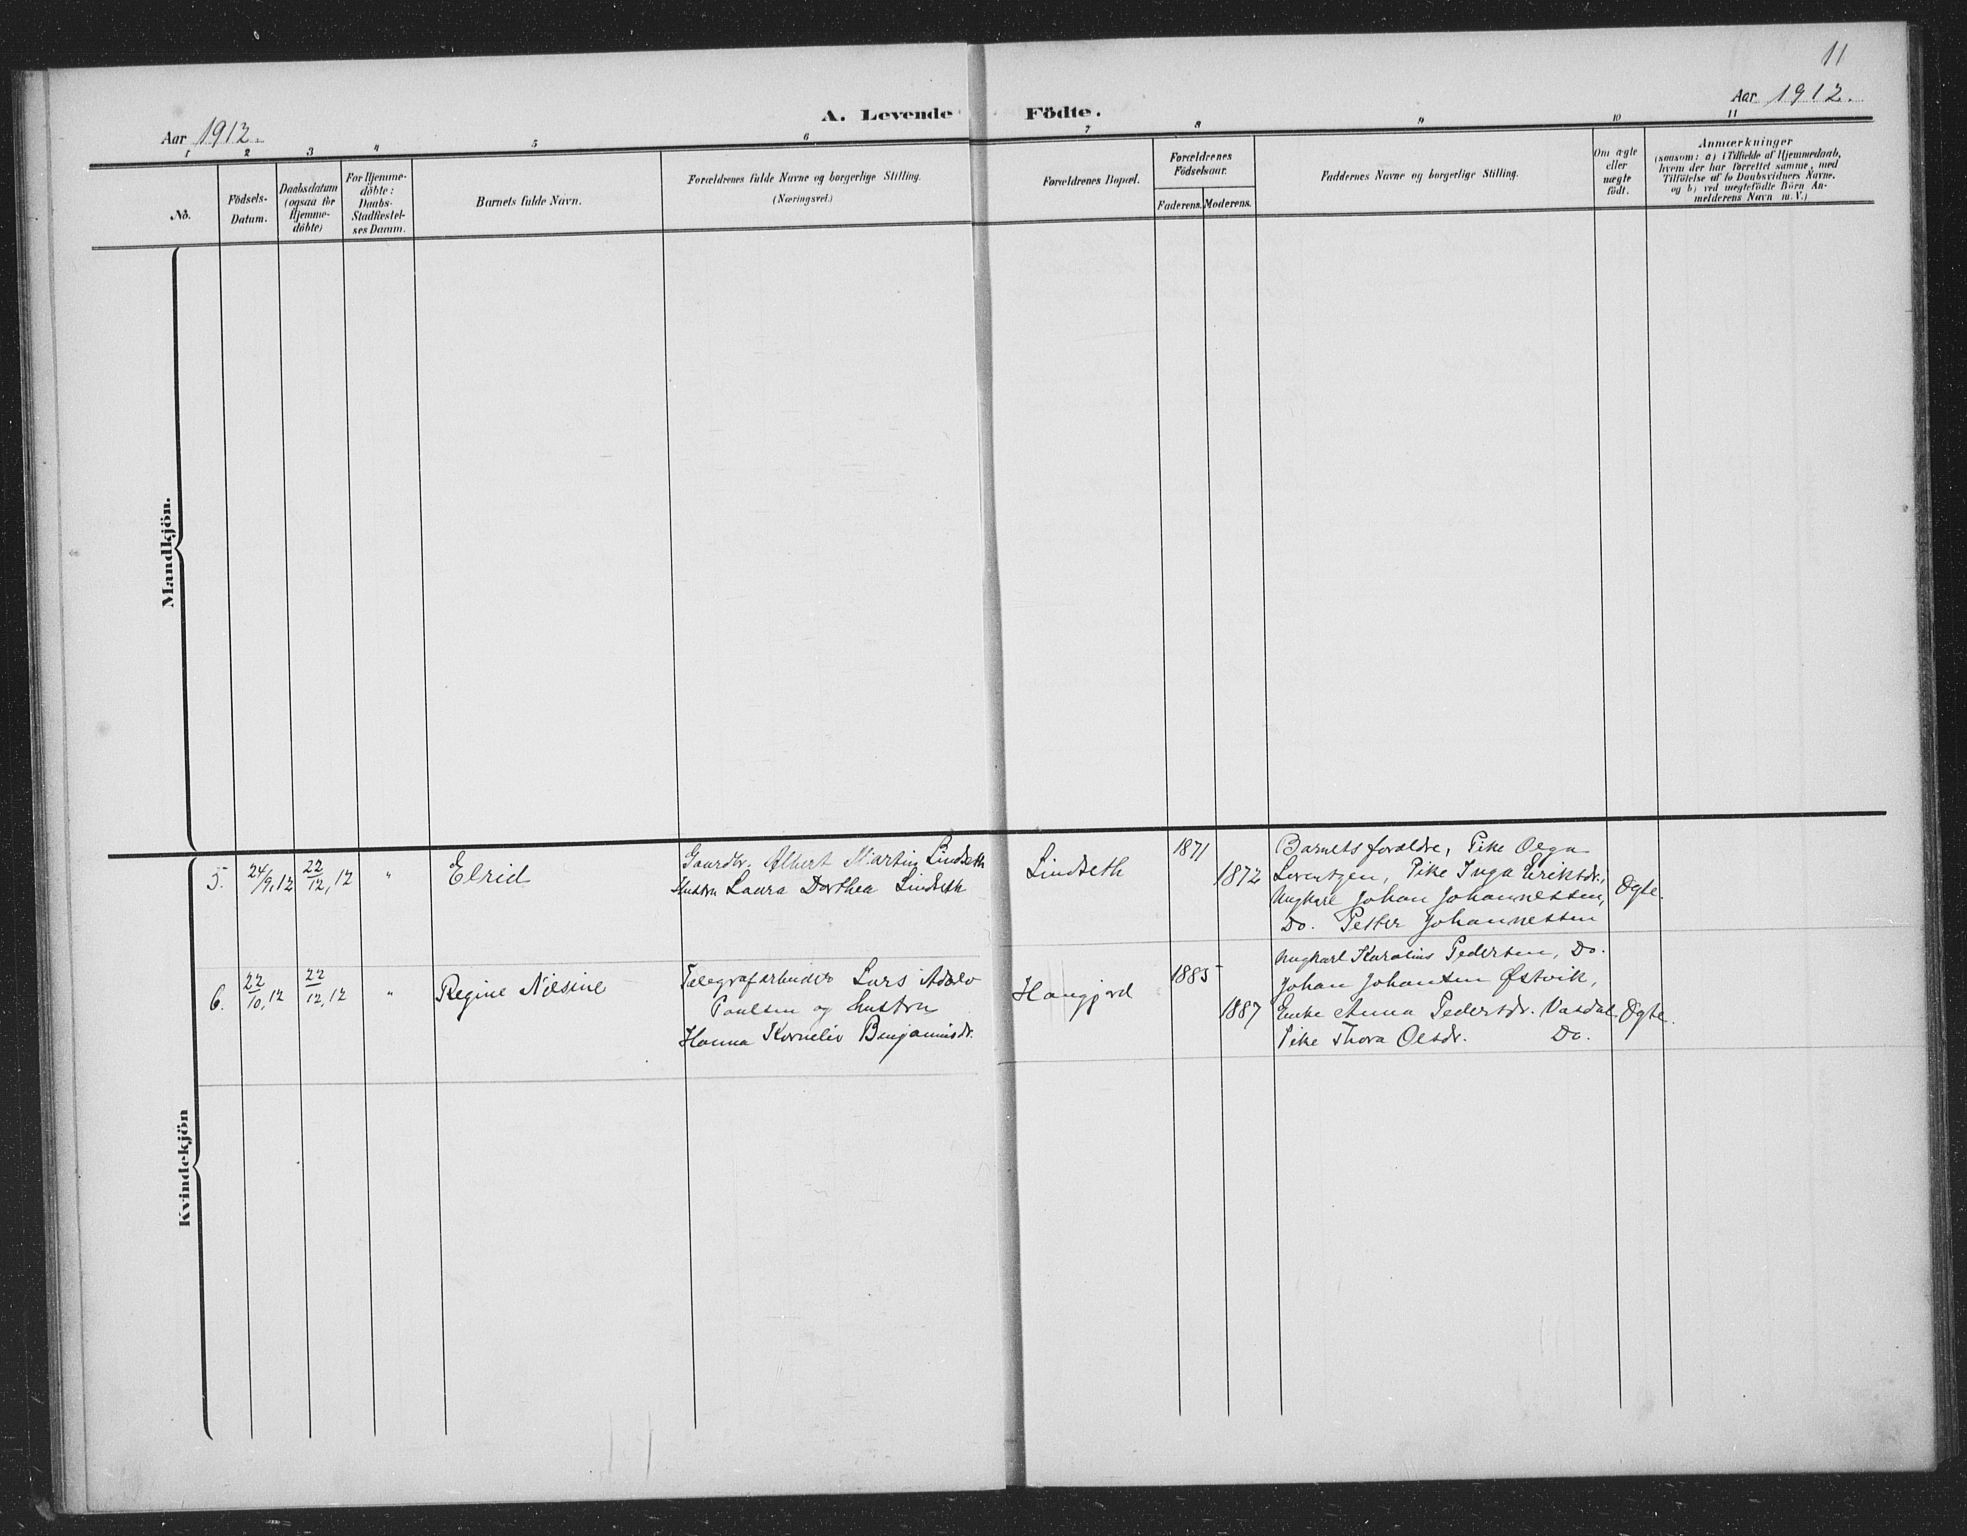 11
Aar 1912.
A. Levende Födte.
Aar 1912.
1 2 3 4 5 6 7 8 9 10 11
Nô.
Födsels-
Datum.
Daabsdatum
(ogsaa for
Hjemme-
döbte)
For Hjemme-
döbte:
Daabs-
Stadfestel-
ses Datum.
Barnets fulde Navn.
Forældrenes fulde Navne og borgerlige Stilling.
(Næringsvei.)
Forældrenes Bopæl.
Forældrenes
Födselsaar.
Faderens. Moderens.
Faddernes Navne og borgerlige Stilling.
Om ægte
eller
uægte
födt.
Anmærkninger
(saasom: a) i Tilfælde af Hjemmedaab,
hvem der har forrettet samme, med
Tilföielse af to Daabsvidners Navne,
og b) ved uægtefödte Börn An-
melderens Navn m. V.)
Mandkjön.
Kvindekjön
5. 24/9,12 22/12,12 " Elrid
Gaardbr. Albert Martin Lindseth
Hustru Laura Dorthea Lindseth
Lindseth
1871
1872
Barnets forældre, Pike Olga
Lorentzen, Pike Inga Eriksdr.,
Ungkarl Johan Johannessen,
Do. Petter Johannessen
Ægte.
6. 22/10,12 22/12,12 " Regine Nilsine
Telegrafarbeider Lars Adolv
Paulsen og Hustru
Hanna Kornelie Benjaminsdr.
1885
1887
Ungkarl Karolius Pedersen, Do.
Johan Johansen Østvik,
Enke Anna Pedersdr. Vasdal
Pike Thora Olsdr. Do.
Ægte.